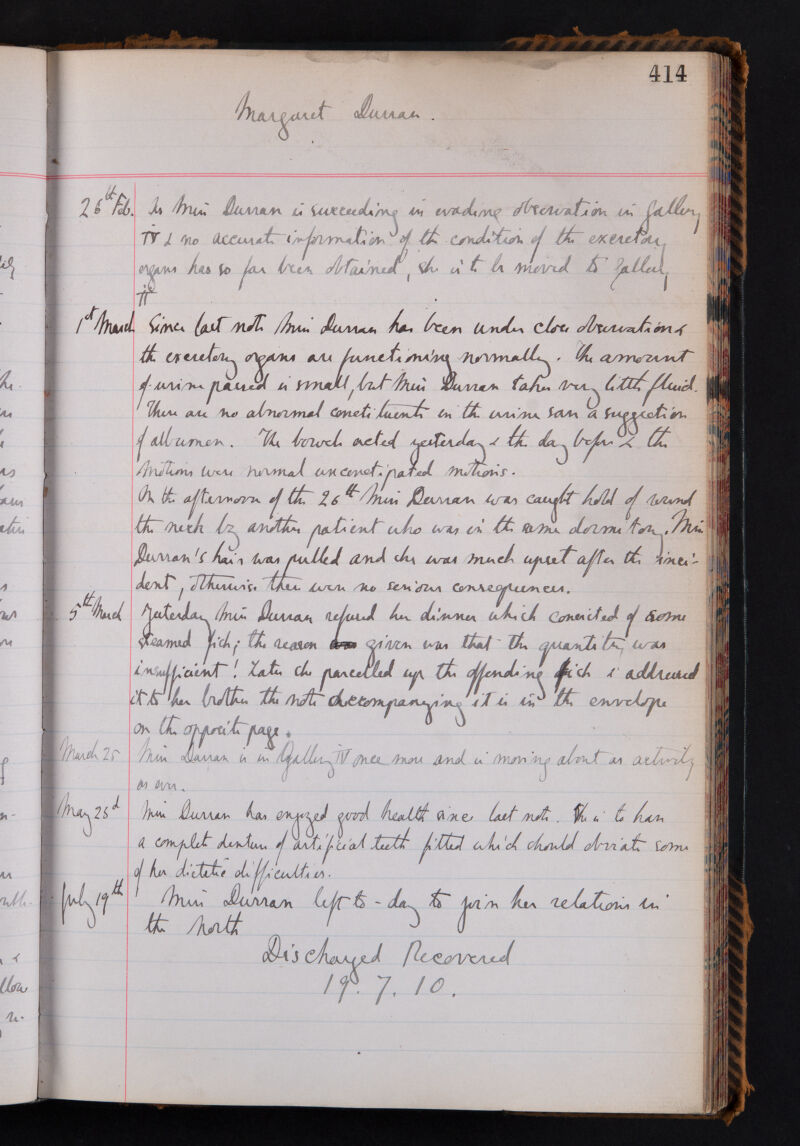 414
Margaret Durran.
26th Feb. As Miss Durran is succeeding in evading observation in Gallery
IV & no accurate information of the condition of the excretory
organs has so far been obtained, she is to be moved to Gallery
II
1st March Since last note Miss Durran has been under close observation &
the excretory organs are functioning normally. The amount
of urine passed is small, but Miss Durran takes very little fluid.
There are no abnormal constituents in the urine save a suggestion
of albumen. The bowels acted yesterday & the day before & the
motions were normal unconstipated motions.
On the afternoon of the 26th Miss Durran was caught hold of round
the neck by another patient who was in the same dormitory. Miss
Durran's hair was pulled and she was much upset after the inci-
dent, otherwise there were no serious consequences.
5th March Yesterday Miss Durran refused her dinner which consisted of some
steamed fish; the reason given was that the quantity was
insufficient! Later she parcelled up the offending fish & addressed
it to her brother the note accompanying it is in the envelope
on the opposite page.
March 25 Miss Durran is in Gallery IV once more and is moving about as actively
as ever.
May 25d Miss Durran has enjoyed good health since last note. She is to have
a complete denture of artificial teeth fitted which should obviate some
of her dietetic difficulties.
July 19th Miss Durran left to-day to join her relations in
the North
Discharged Recovered
19.7.10.